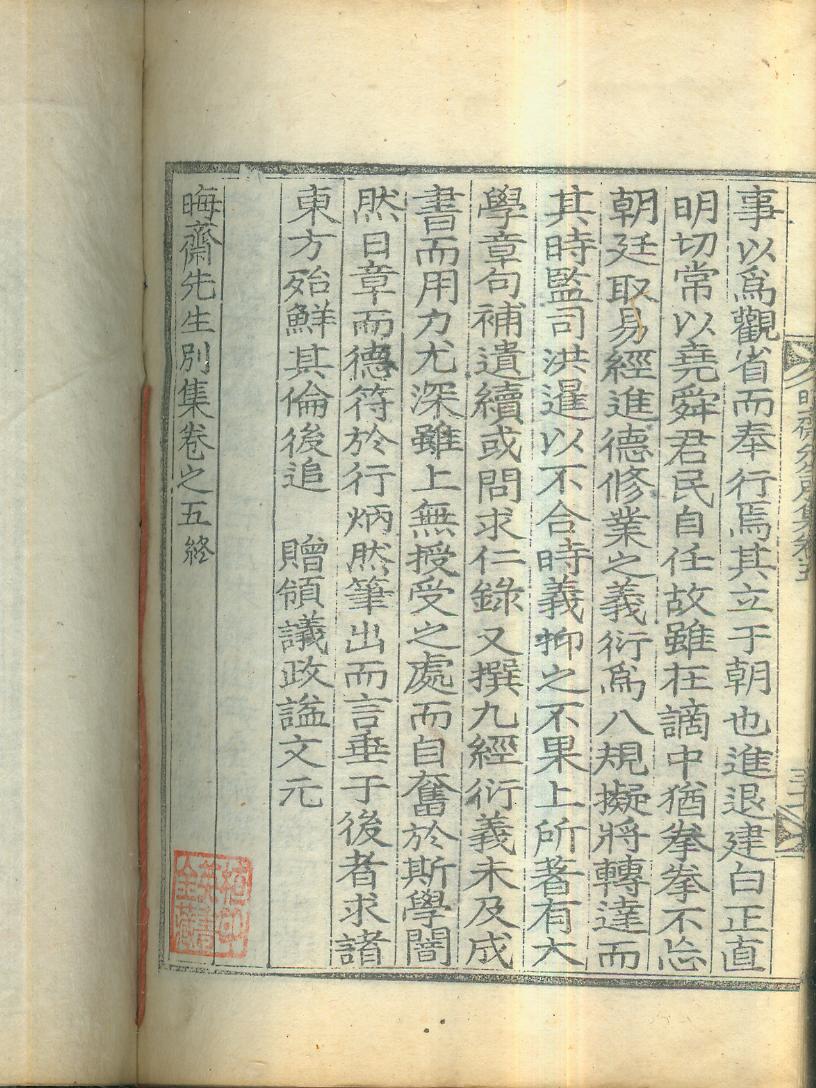 事以爲觀省而奉行焉其立于朝也進退建白正直
明切常以堯舜君民自任故雖在謫中猶拳拳不忘
朝廷取易經進德修業之義衍爲八規擬將轉達而
其時監司洪暹以不合時義抑之不果上所著有大
學章句補遺續或問求仁錄又撰九經衍義未及成
書而用力尤深雖上無授受之處而自奮於斯學闇
然日章而德符於行炳然筆出而言垂于後者求諸
東方殆鮮其倫後追　贈領議政謚文元
晦齋先生別集卷之五終